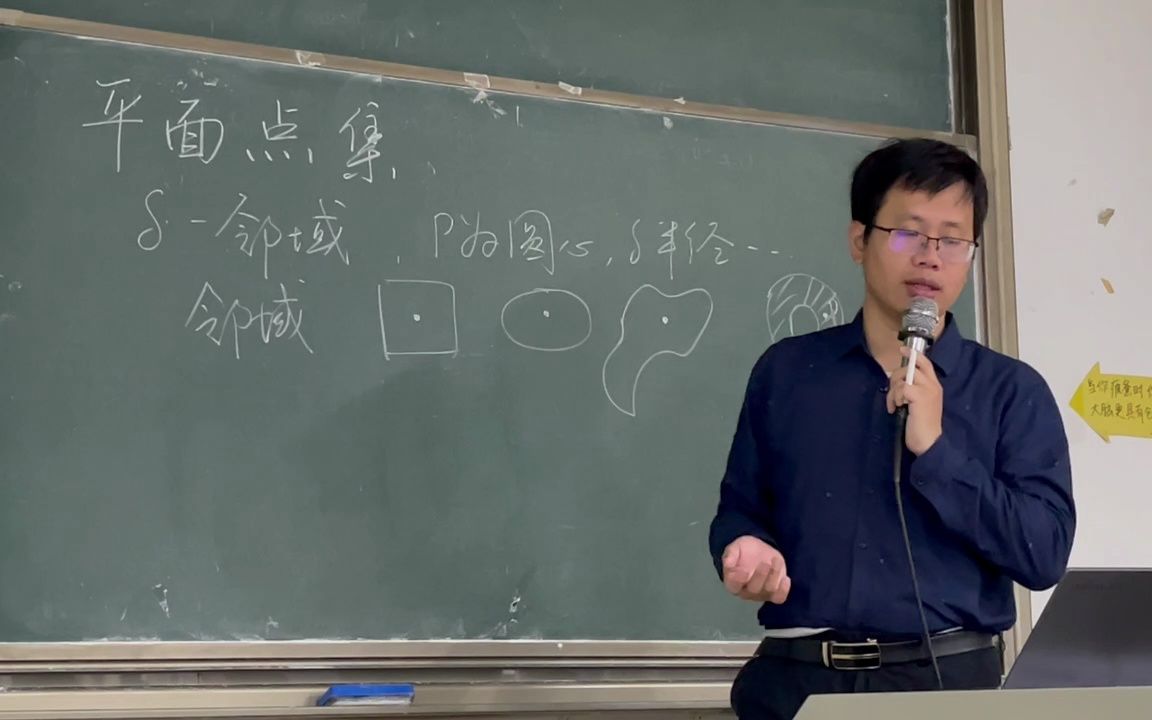 平面点集
δ-邻域，P为圆心，δ半径…
邻域
当你疲惫时
大脑更具有